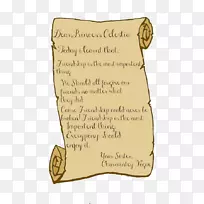 Dear, Princess Celestia
Today I learned that.
Friendship is the most important
thing.
We Should all forgive our
friends no matter what
they did.
Friendship could never be
Friend Friendship is the most
Important thing.
Everypony Should
enjoy it.
Your Sister